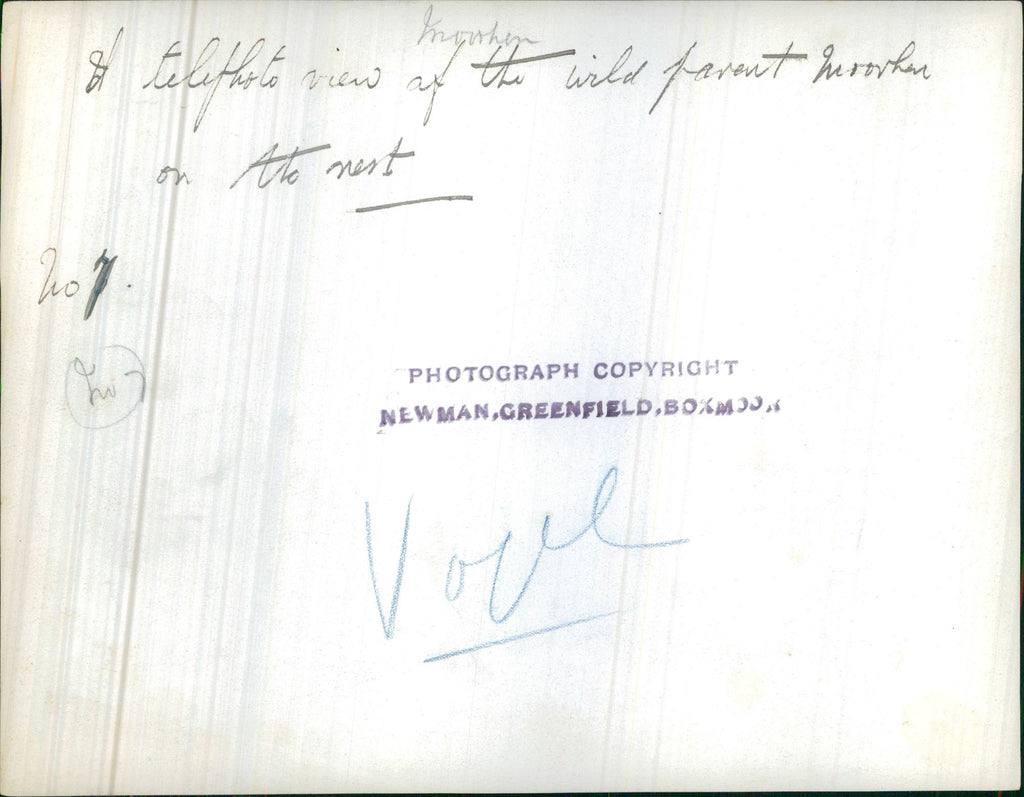 Moorhen
A telephoto view of the wild parent Moorhen
on its nest
No 7.
No 7
PHOTOGRAPH COPYRIGHT
NEWMAN, GREENFIELD, BOXMOOR
Vogel